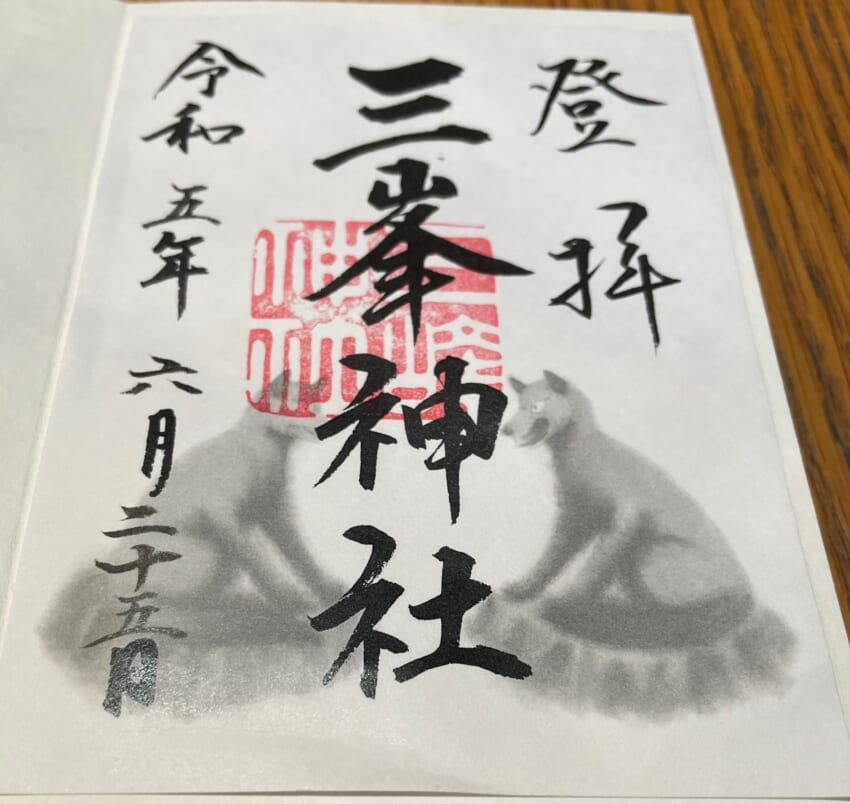 登拝
三峯神社
令和五年六月二十五日